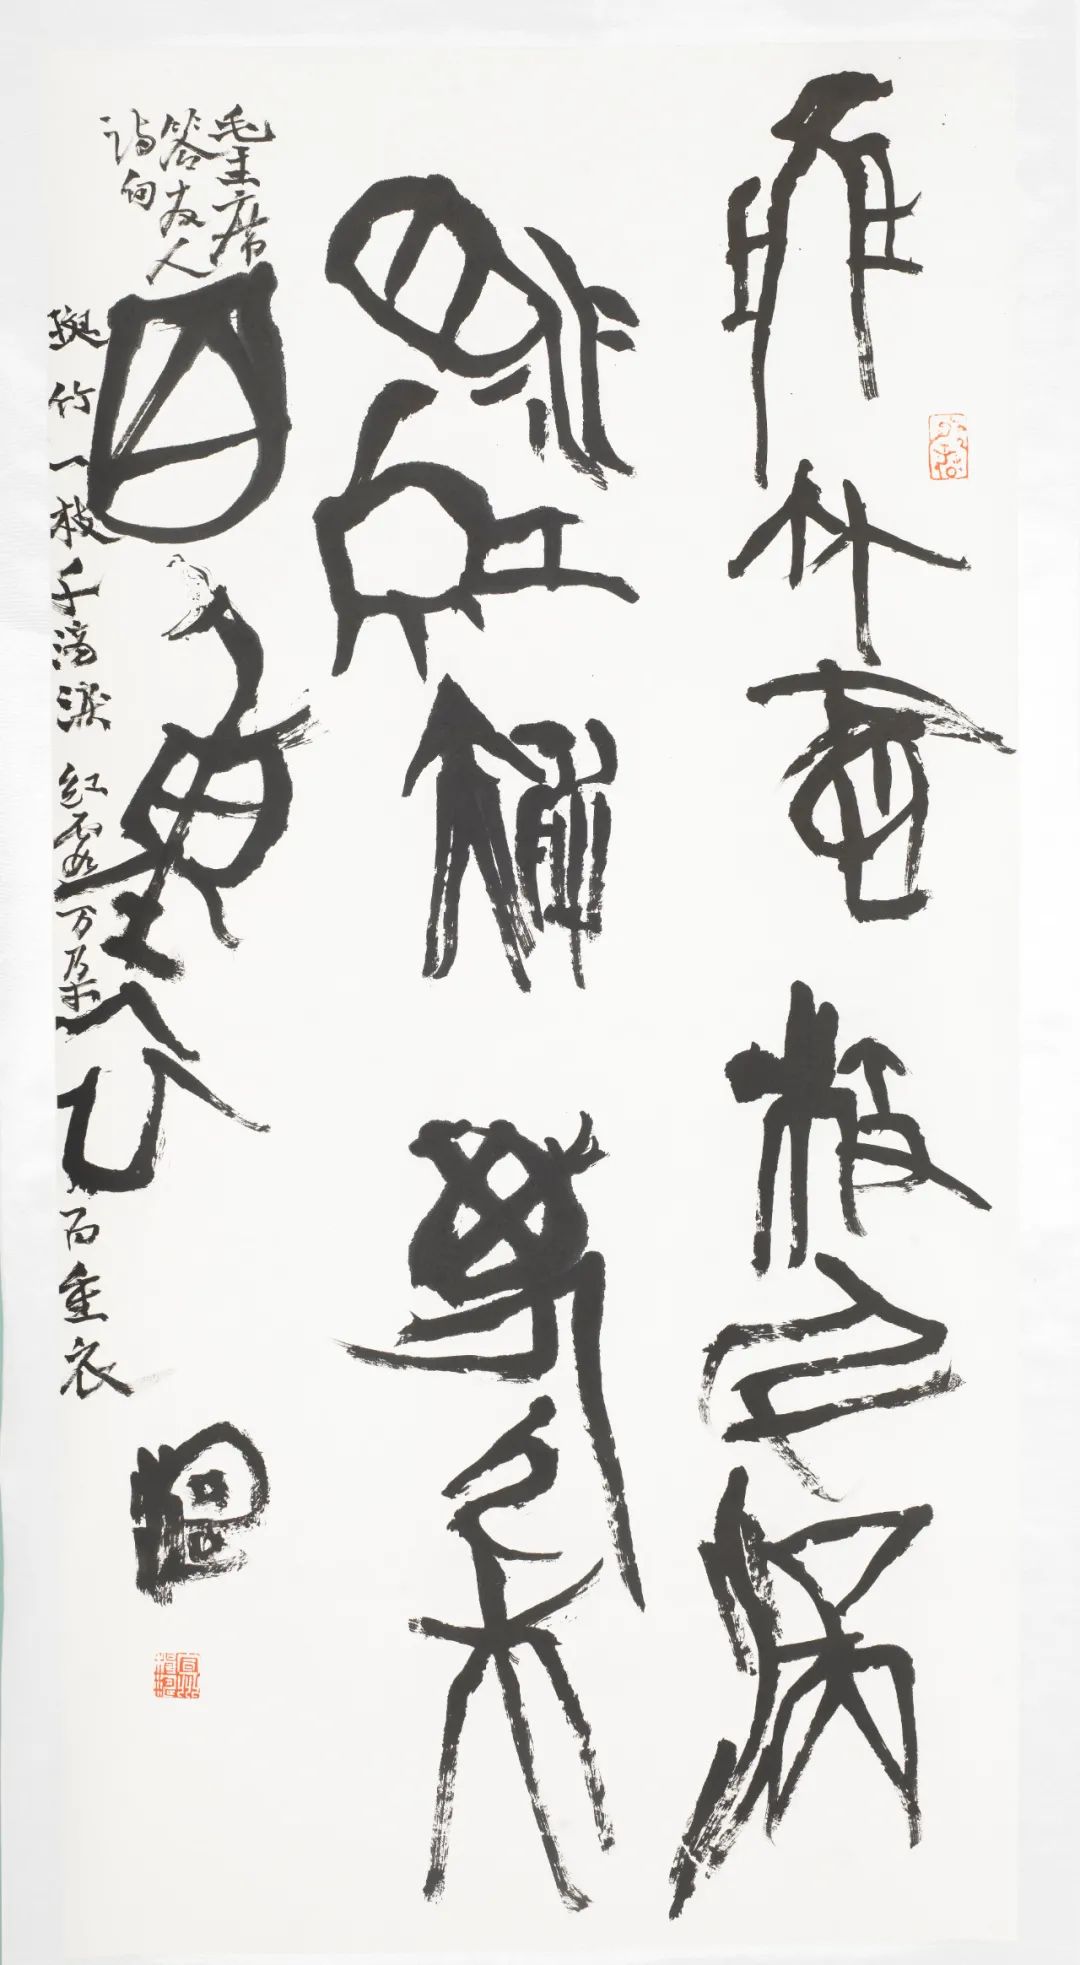 斑竹壹枝千滴
泪红霞萬朵
百重衣
毛主席
答友人
诗句
斑竹一枝千滴淚 红霞万朵百重衣